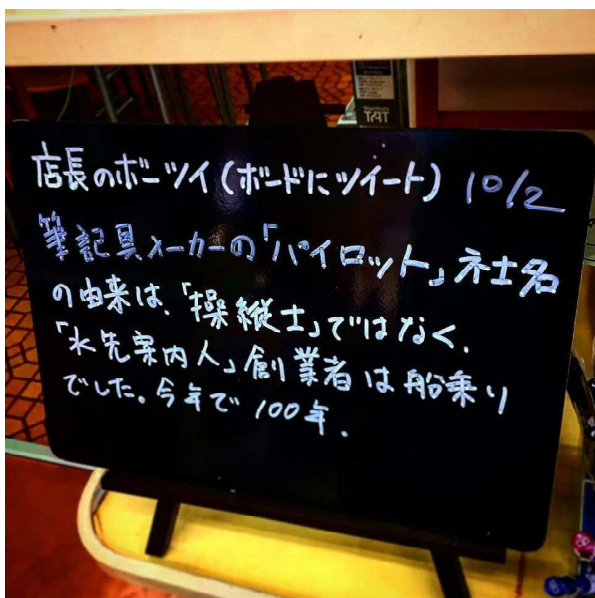 TAT
店長のボーツイ(ボードにツイート) 10/2
筆記具メーカーの「パイロット」社名
の由来は、「操縦士」ではなく、
「水先案内人」創業者は船乗り
でした。今年で100年.